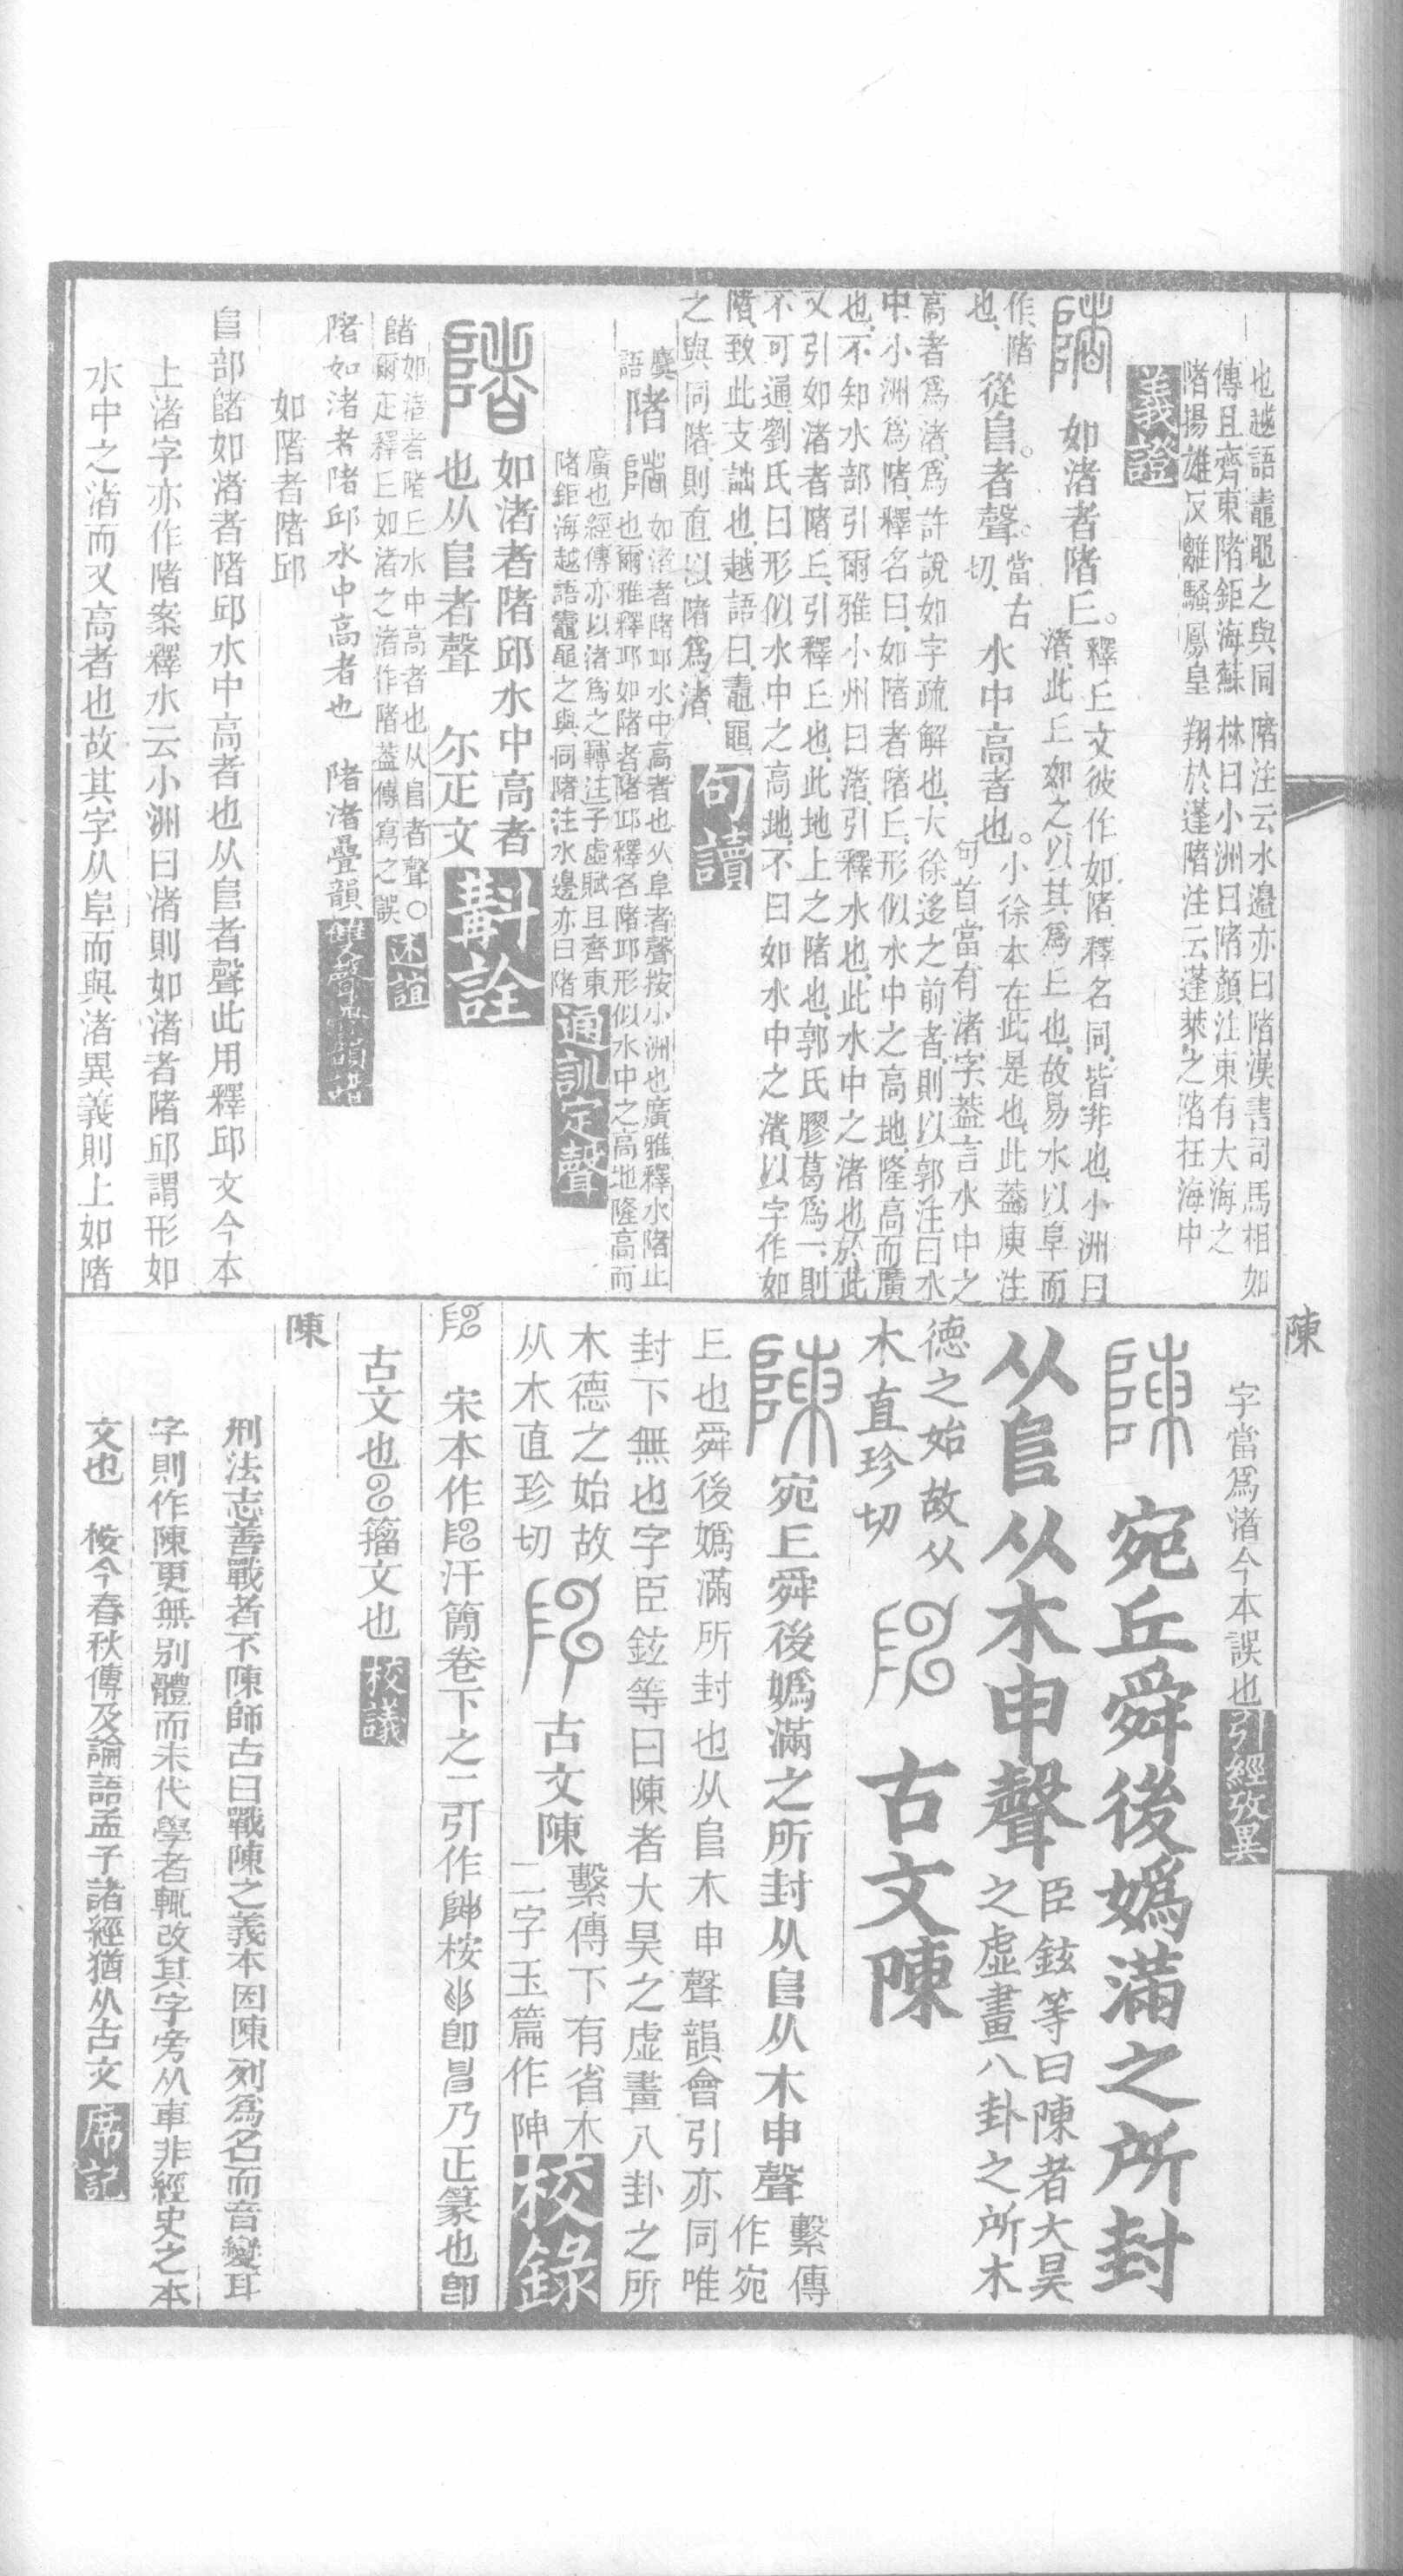 也越語鼃黽之與同陼注云水邊亦曰陼漢書司馬相如
傳且齊東陼鉅海蘇林曰小洲曰陼顏注東有大海之
陼揚雄反離騷鳳皇翔於蓬陼注云蓬萊之陼在海中
義證
如渚者陼丘。
釋丘文彼作如陼釋名同皆非也小洲曰
渚此丘如之以其爲丘也故易水以阜而
作陼
也
從𨸏。者聲。
當古
切
水中高者也。
小徐本在此是也此葢庾注
句首當有渚字葢言水中之
高者爲渚爲許說如字疏解也大徐迻之前者則以郭注曰水
中小洲爲陼釋名曰如陼者陼丘形似水中之高地隆高而廣
也不知水部引爾雅小州曰渚引釋水也此水中之渚也於此
又引如渚者陼丘引釋丘也此地上之陼也郭氏膠葛爲一則
不可通劉氏曰形似水中之高地不曰如水中之渚以字作如
陼致此支詘也越語曰鼃黽
之與同陼則直以陼爲渚
句讀
陼
如渚者陼邱水中高者也从阜者聲按小洲也廣雅釋水陼止
也爾雅釋邱如陼者陼邱釋名陼邱形似水中之高地隆高而
廣也經傳亦以渚爲之轉注子虛賦且齊東
陼鉅海越語鼃黽之與同陼注水邊亦曰陼
通訓定聲
如渚者陼邱水中高者
也从𨸏者聲 尒疋文
斠詮
陼如渚者陼丘水中高者也从𨸏者聲〇
爾疋釋丘如渚之渚作陼葢傳寫之誤
述誼
陼如渚者陼邱水中高者也 陼渚疊韻
如陼者陼邱
𨸏部陼如渚者陼邱水中高者也从𨸏者聲此用釋邱文今本
上渚字亦作陼案釋水云小洲曰渚則如渚者陼邱謂形如
水中之渚而又高者也故其字从阜而與渚異義則上如陼
陳
字當爲渚今本誤也
引經攷異
宛丘舜後嬀滿之所封
从𨸏从木申聲
臣鉉等曰陳者大昊
之虛畫八卦之所木
德之始故从
木直珍切
古文陳
宛丘舜後嬀滿之所封从𨸏从木申聲
繫傳
作宛
丘也舜後嬀滿所封也从𨸏木申聲韻會引亦同唯
封下無也字臣鉉等曰陳者大昊之虛畫八卦之所
木德之始故
从木直珍切
古文陳
繫傳下有省木
二字玉篇作陣
校錄
宋本作𨸬汗簡卷下之二引作
古文也
籀文也
校議
陳
刑法志善戰者不陳師古曰戰陳之義本因陳列爲名而音變耳
字則作陳更無別體而末代學者輒改其字旁从車非經史之本
文也 桉今春秋傳及論語孟子諸經猶从古文
席記